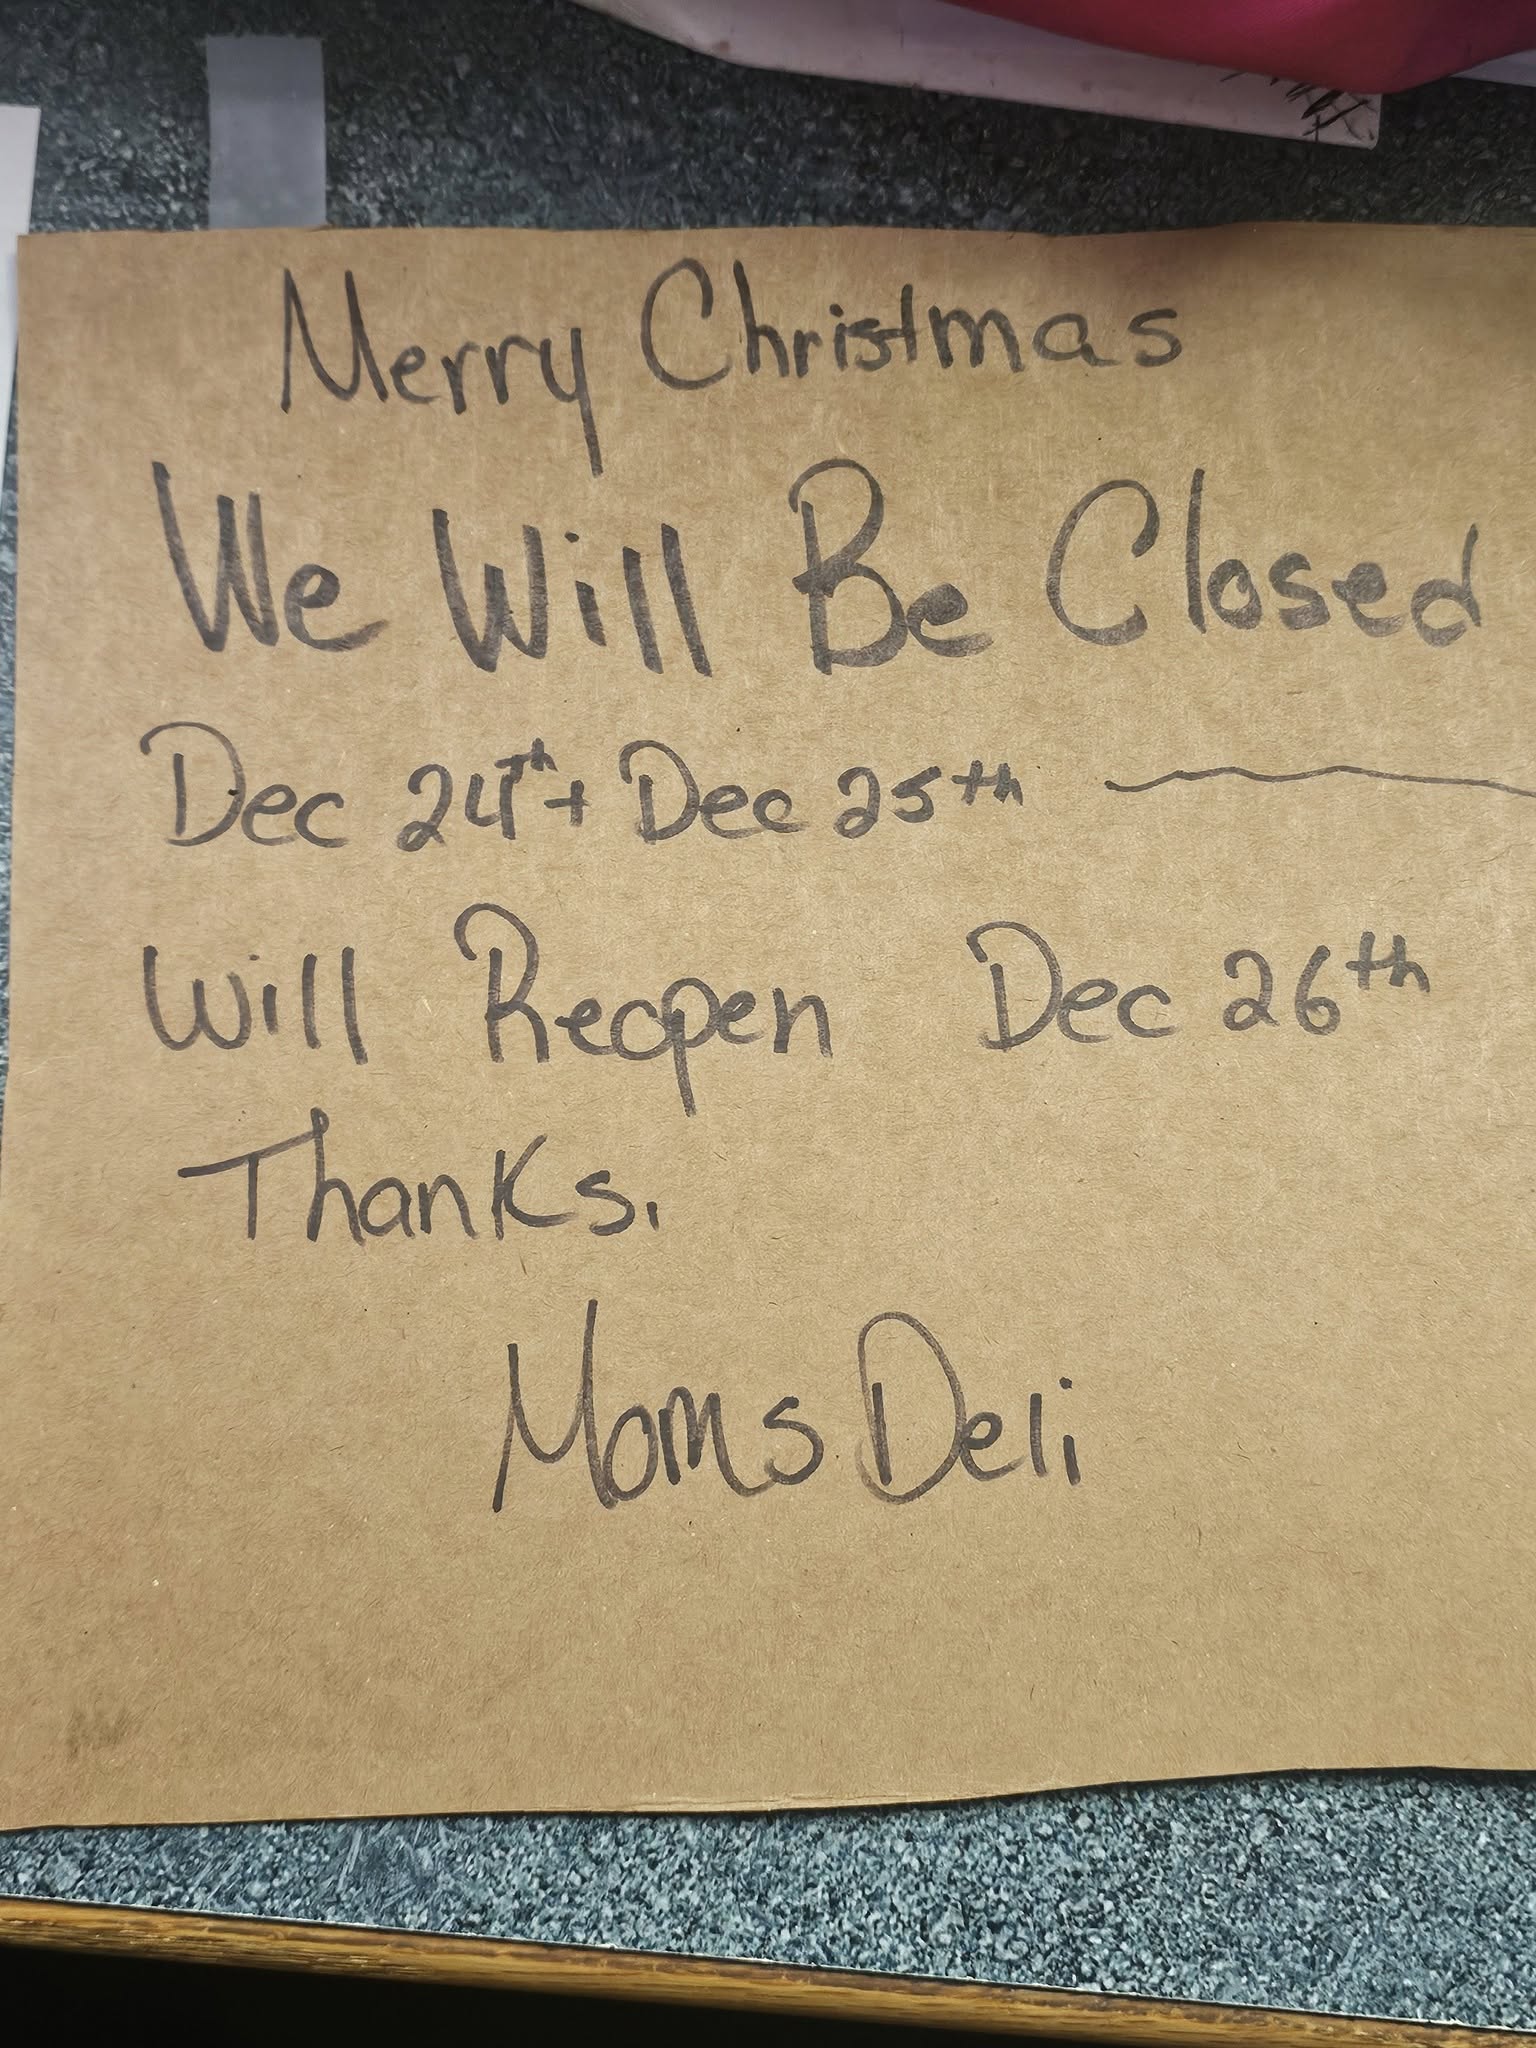 Merry Christmas
We Will Be Closed
Dec 24th + Dec 25th
Will Reopen Dec 26th
Thanks.
Moms Deli